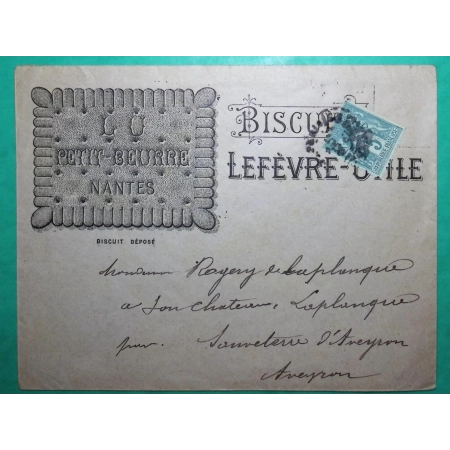 LU
PETIT-BEURRE
NANTES
BISCUIT DÉPOSÉ
BISCUI
LEFÈVRE-UTILE
Monsieur Ragery de Laplanque
a son chateau, Laplanque
par. Sauveterre d'Aveyron
Aveyron